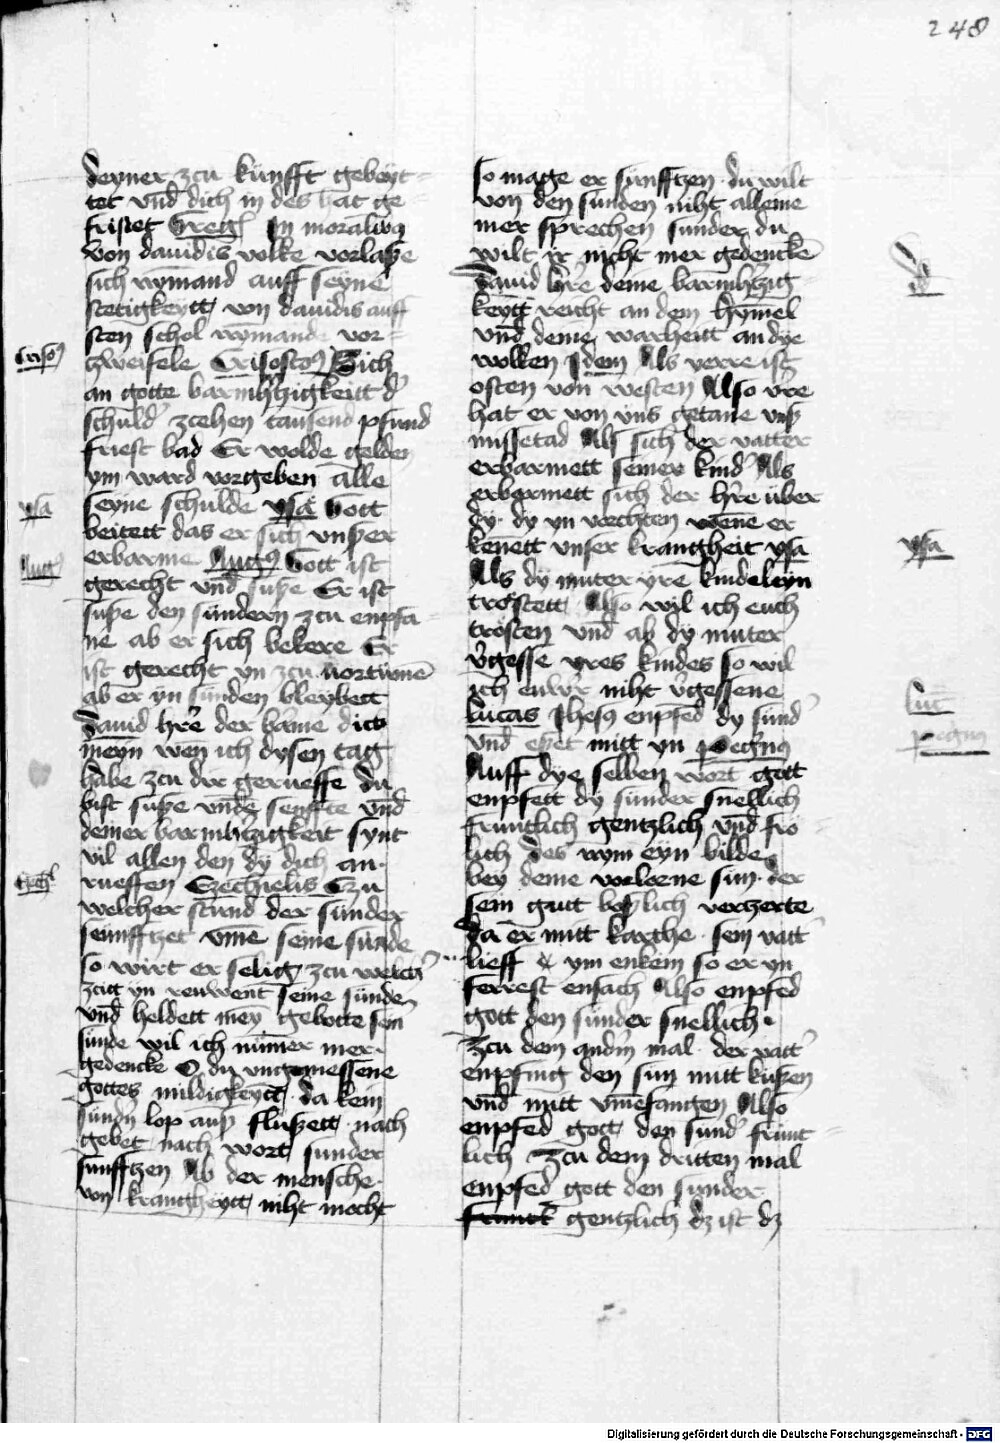 248
deyner zcu kunfft gebeyt-
tet vnd dich in des hat ge
fristet Greg In moralibus
von dauidis volke vorlaße
sich nymand auff seyne
stetigkeytt von dauidis auff
sten schol nymande vor-
zweifele Crisostus Sich
an gotte barmhzigkeitt d'
schuld' zcehen tausend pfund
friest bad Er wolde gelden
ym ward vorgeben alle
seyne schulde ysa Gott
beitett das er sich vnßer
erbarme Augus Gott ist
gerecht vnd suße Er ist
suße den sundern zcu enpfa
ne ab er sich bekere Er
ist gerecht yn zcu vortume
ab er yn sunden bleybett
Dauid h're der barme dich
meyn wen ich dysen tag
habe zcu dir gerueffe du
bist suße vnde senffte vnd
deiner barmhtzigkeit synt
vil allen den dy dich an-
rueffen Ezechielis Czu
welcher stund der sunder
seunfftzet vme seine sunde
so wirt er selig zcu welch'
zcitt yn reuwent seine sunde
vnd heldett mey gebotte sein
sunde wil ich nimer mer
gedencke O du vngemessene
gottes mildigkeytt da kein
sund'n lop auß flußett nach
gebet nach wort sunder
sunfftzen Ab der mensche
von krangheytt niht mocht
so mage er sunfftzen du wilt
von den sunden niht alleine
mer sprechen sunder du
wilt ir nicht mer gedencke
Dauid h're deine barmhtzig
keytt reicht an dem hymel
vnd deine warheitt an dye
wolken Idem Als verre ist
osten von westen Also v're
hat er von vns getane vnß
missetad Als sich der vatter
erbarmett seiner kind' Als
erbarmett sich der h're über
dy dy yn vorchten wene er
kenett vnser krangheit ysa
Als dy muter yre kindeleyn
tröstett Also wil ich euch
trösten vnd ab dy muter
v'gesse yres kindes so wil
ich euw'r niht v'gessene
lucas Ihesus enpfed dy sund'
vnd esset mitt yn
Auff dye selben wort gott
enpfett dy sunder snellich
fruntlich gentzlich vnd frö
lich des nym eyn bilde
bey deme vorlorne sun der
sein gutt boßlich verzerte
Da er mitt karghe sein vatt'
lieff ym enkein so er yn
ferrest ensach Also enpfed
gott den sunder snellich
Zcu dem and'm mal der vatt'
enpfing den sun mitt kußen
vnd mitt vmefangen Also
enpfed gott den sund' frunt
lich Zcu dem dritten mal
enpfed gott den sunder
gentzlich dz ist dz
Crisos
ysa
Augus
Ezechl
Dd
ysa
luc
Digitalisierung gefördert durch die Deutsche Forschungsgemeinschaft - DFG